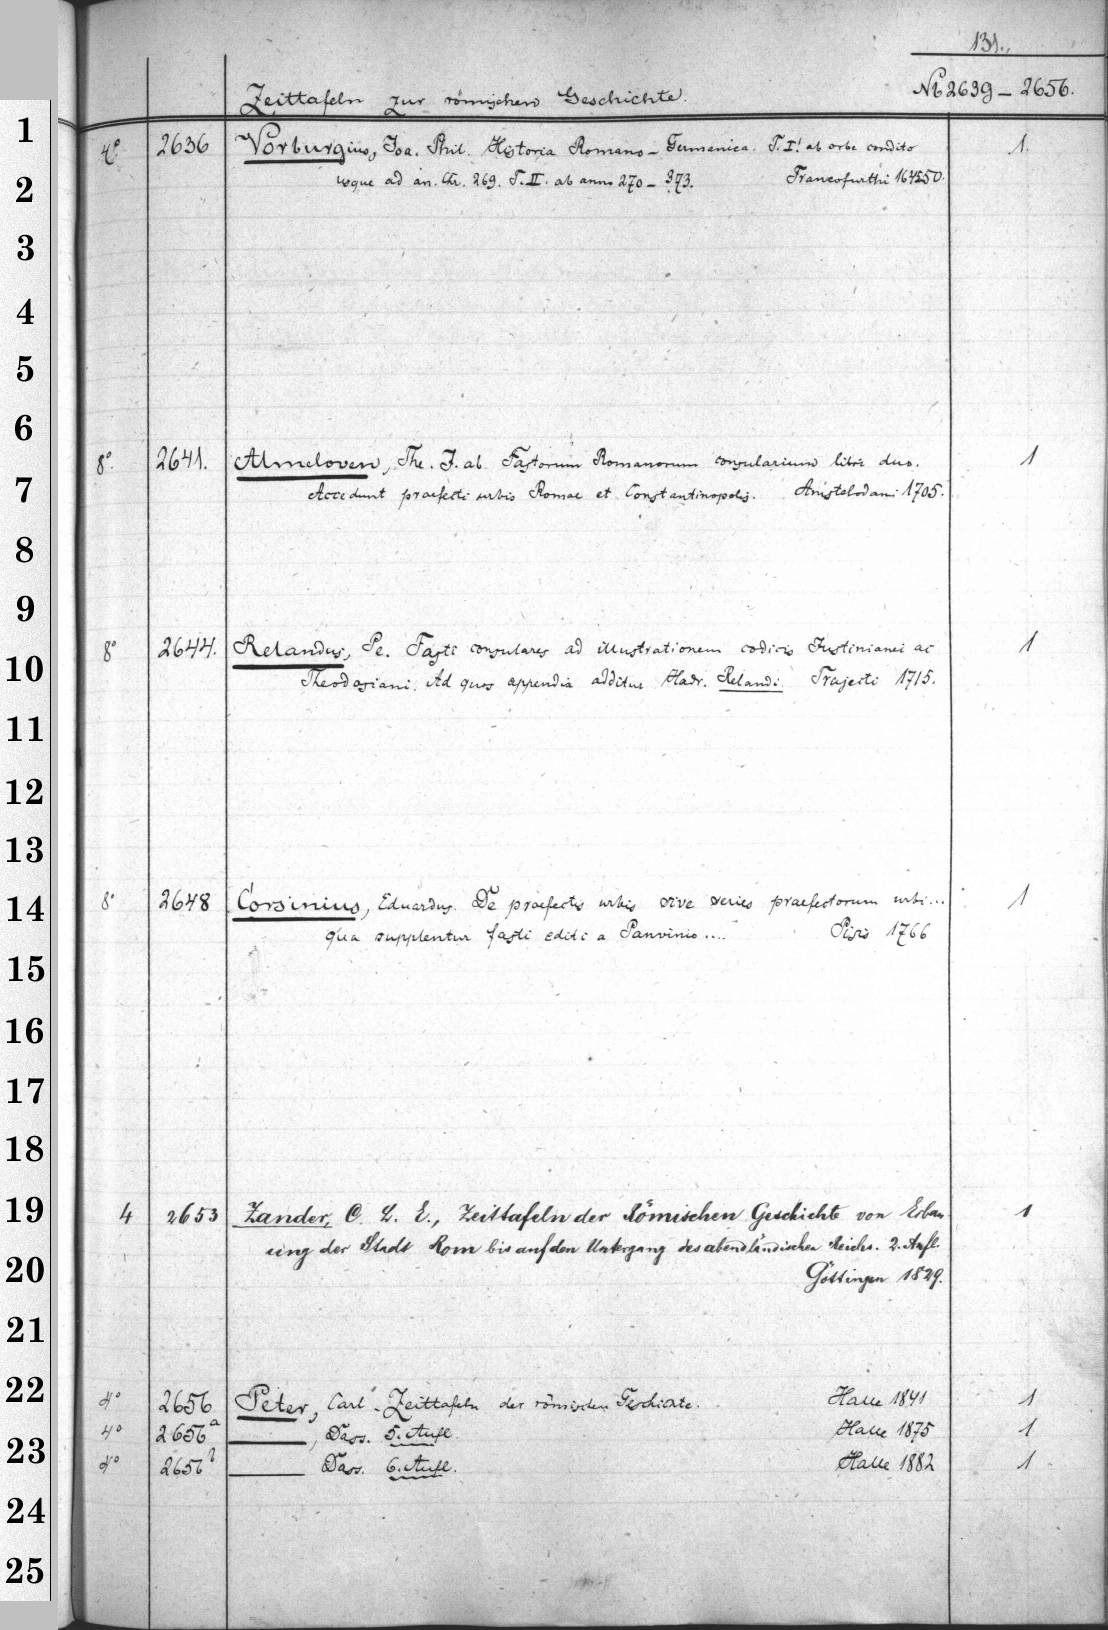 131.
Zeittafeln zur römischen Geschichte. № 2639 – 2656.
1
4° 2636 Vorburgius, Joa. Phil. Historia Romano-Germanica. T. I. ab orbe condito 1.
2
usque ad an. Chr. 269. T. II. ab anno 270 – 373. Francofurthi
3
4
5
6
8°. 2641. Almeloven, The. J. ab. Fastorum Romanorum consularium libri duo. 1
7
Accedunt praefecti urbis Romae et Constantinopolis. Amstelodami 1705.
8
9
8° 2644. Relandus, Pe. Fasti consulares ad illustrationem codicis Justinianei ac 1
10
Theodosiani. Ad quos appendix additus Hadr. Relandi. Trajecti 1715.
11
12
13
8° 2648 Corsinius, Eduardus. De praefectis urbis sive series praefectorum urbi... 1
14
qua supplentur fasti editi a Panvinio .... Pisis 1766
15
16
17
18
19
4 2653 Zander, C. L. E., Zeittafeln der Römischen Geschichte von Erbau- 1
ung der Stadt Rom bis auf den Untergang des abendländischen Reichs. 2. Aufl.
20
Göttingen 1829.
21
22
4° 2656 Peter, Carl. Zeittafeln der römischen Geschichte. Halle 1841 1
4° 2656a ———, Dass. 5. Aufl. Halle 1875 1
23
4° 2656b ——— Dass. 6. Aufl. Halle 1882 1
24
25